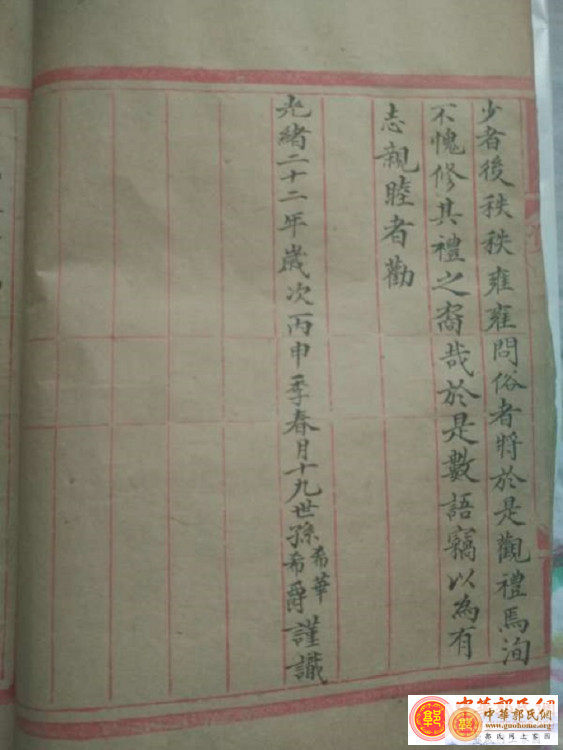 少者後秩秩雍雍問俗者將於是觀禮焉洵
不愧修其禮之裔哉於是數語竊以為有
志親睦者勸
光緒二十二年歲次丙申季春月十九世孫希華希爵謹識
中華郭氏網
www.guohome.org
郭氏网上家园